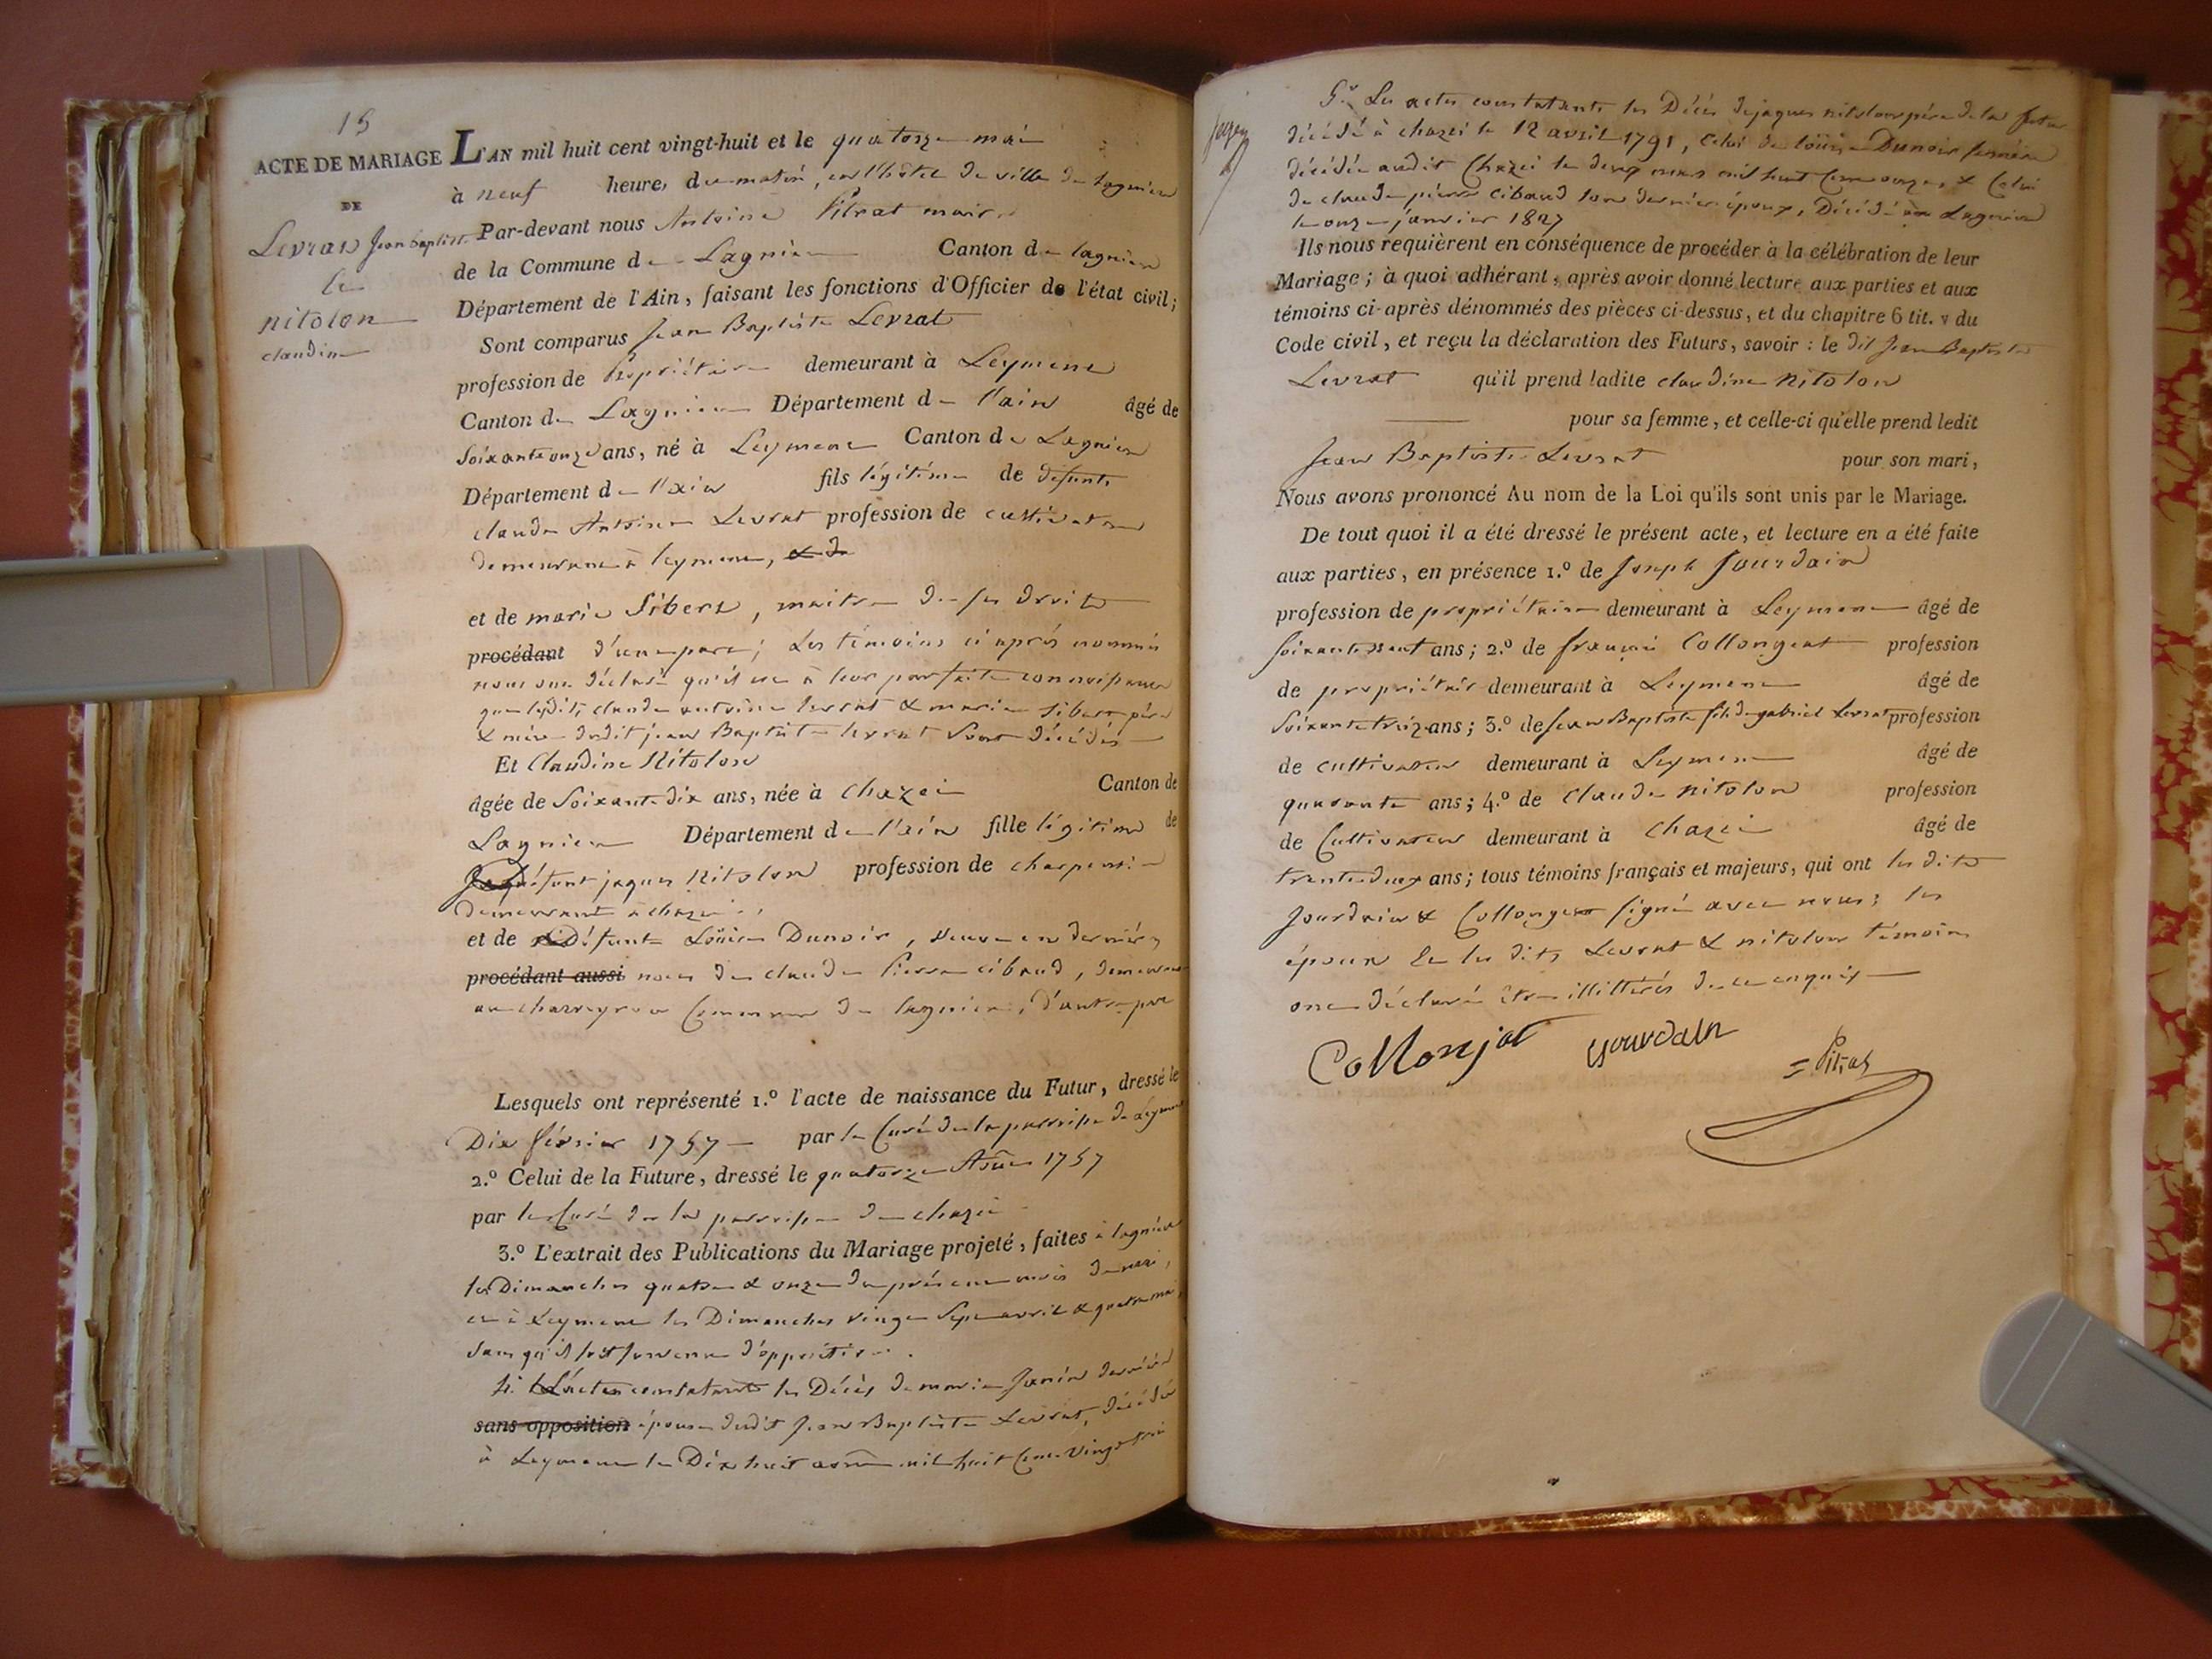 15
ACTE DE MARIAGE
DE
Levrat Jean baptiste
le
nitolon
claudine
L'AN mil huit cent vingt-huit et le quatorze mai
à neuf heures du matin, en l'hôtel de ville de lagnieu
Par-devant nous Antoine Pitrat maire
de la Commune de Lagnieu Canton de lagnieu
Département de l'Ain, faisant les fonctions d'Officier de l'état civil;
Sont comparus Jean Baptiste Levrat
profession de Propriétaire demeurant à Leyment
Canton de Lagnieu Département de l'ain âgé de
Soixante onze ans, né à Leyment Canton de Lagnieu
Département de l'ain fils légitime de defunts
claude Antoine Levrat profession de cultivateur
demeurant à leyment, & de
et de marie Sibert, maitre de ses droits
procédant d'une part; Les témoins ci après nommés
nous ont déclaré qu'il est à leur parfaite connoissance
que lesdits claude antoine levrat & marie sibert père
& mère dudit jean Baptiste levrat Sont décédés
Et Claudine Nitolon
âgée de Soixante dix ans, née à Chazei Canton de
Lagnieu Département de l'ain fille légitime de
défunt jaques Nitolon profession de charpentier
demeurant à chazei
et de Défunte Loüise Dunoir, veuve en dernières
procédant aussi noces de claude Pierre cibaud, demeurant
au charveyron Commune de lagnieu, d'autre part
Lesquels ont représenté 1.º l'acte de naissance du Futur, dressé le
Dix février 1757 par le Curé de la parroisse de Leyment
2.º Celui de la Future, dressé le quatorze 1757
par le Curé de la parroisse de chazei
3.º L'extrait des Publications du Mariage projeté, faites à lagnieu
les Dimanches quatre & onze du présent mois de mai,
et à Leyment les Dimanches vingt Sept avril & quatre mai,
Sans qu'il soit survenu d'opposition.
4.º L'acte constatant le Décès de marie Janin dernière
sans opposition épouse dudit Jean Baptiste Levrat, décédée
à Leyment le Dix huit mil huit Cent vingt trois
5.º Les actes constatants les Décès de jaques nitolon père de la future
décédé à chazei le 12 avril 1791, celui de loüise Dunoir sa mère
décédée audit Chazei le deux mars mil huit Cent onze, & Celui
de claude pierre Cibaud son dernier époux, Décédé à Lagnieu
le onze janvier 1827
Ils nous requièrent en conséquence de procéder à la célébration de leur
Mariage; à quoi adhérant, après avoir donné lecture aux parties et aux
témoins ci-après dénommés des pièces ci-dessus, et du chapitre 6 tit. v du
Code civil, et reçu la déclaration des Futurs, savoir : le dit Jean Baptiste
Levrat qu'il prend ladite claudine Nitolon
pour sa femme, et celle-ci qu'elle prend ledit
Jean Baptiste Levrat pour son mari,
Nous avons prononcé Au nom de la Loi qu'ils sont unis par le Mariage.
De tout quoi il a été dressé le présent acte, et lecture en a été faite
aux parties, en présence 1.º de Joseph Jourdain
profession de propriétaire demeurant à Leyment âgé de
Soixante ans; 2.º de françois Collongeat profession
de propriétaire demeurant à Leyment âgé de
Soixante treize ans; 3.º de Jean Baptiste fils de gabriel Levrat profession
de cultivateur demeurant à Leyment âgé de
quarante ans; 4.º de Claude nitolon profession
de Cultivateur demeurant à Chazei âgé de
trente deux ans; tous témoins français et majeurs, qui ont les dits
Jourdain & Collongeat signé avec nous; les
époux et les dits Levrat & nitolon témoins
ont déclaré être illittérés de ce enquis
Collonjat
Jourdain
Pitrat